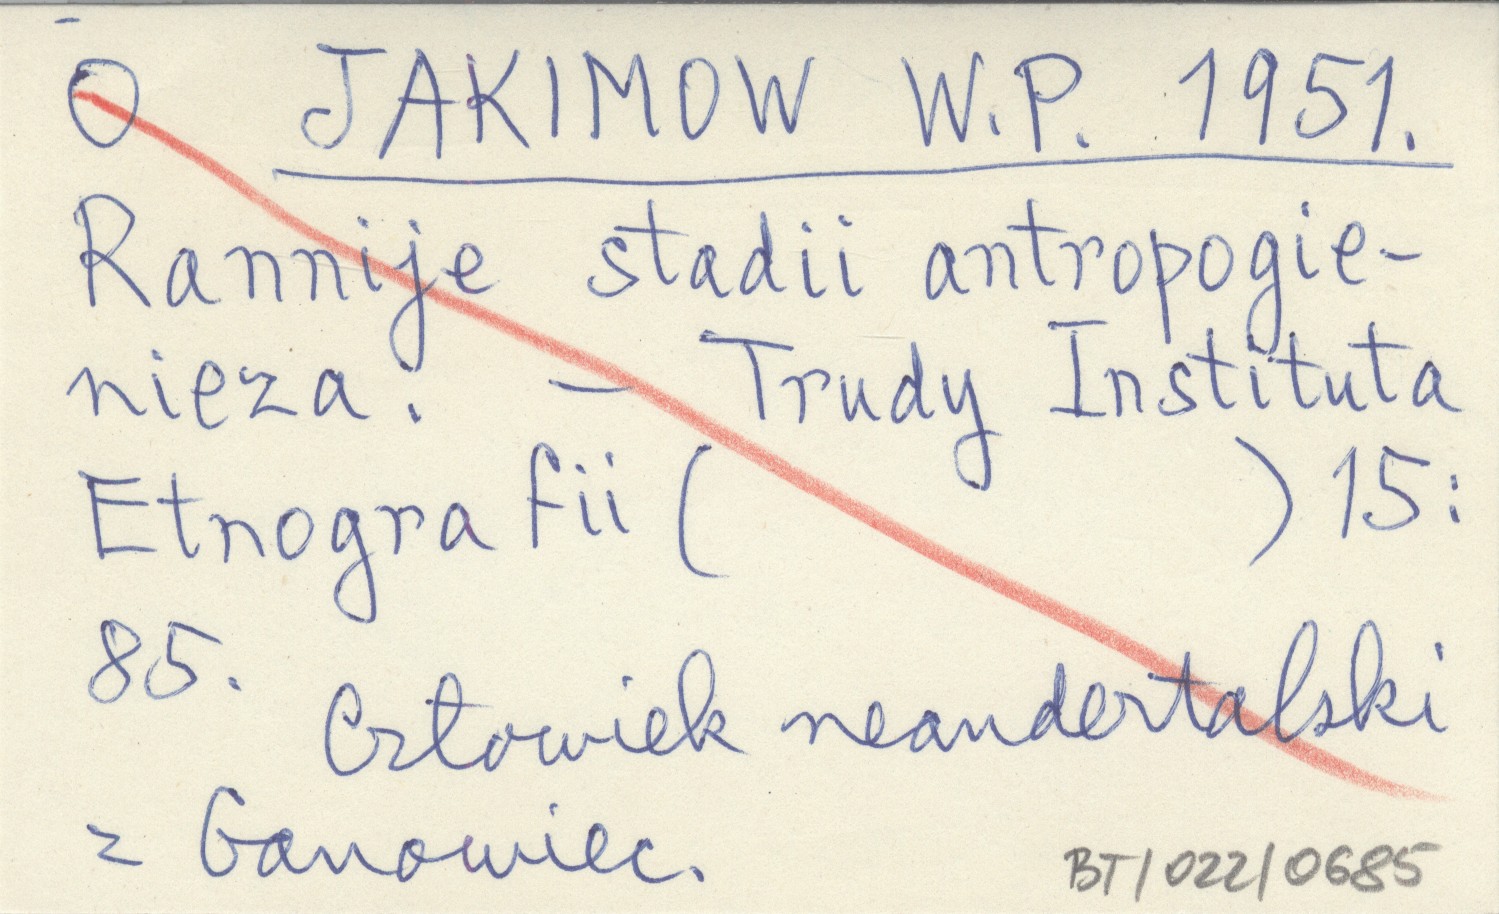 O JAKIMOW W.P. 1951.
Rannije stadii antropogie-
nieza. - Trudy Instituta
Etnografii ( ) 15:
85.
Człowiek neandertalski
z Ganowiec.
BT/022/0685